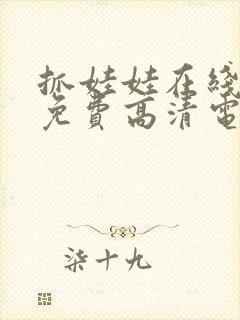 抓娃娃在线
免费高清电
柒十九